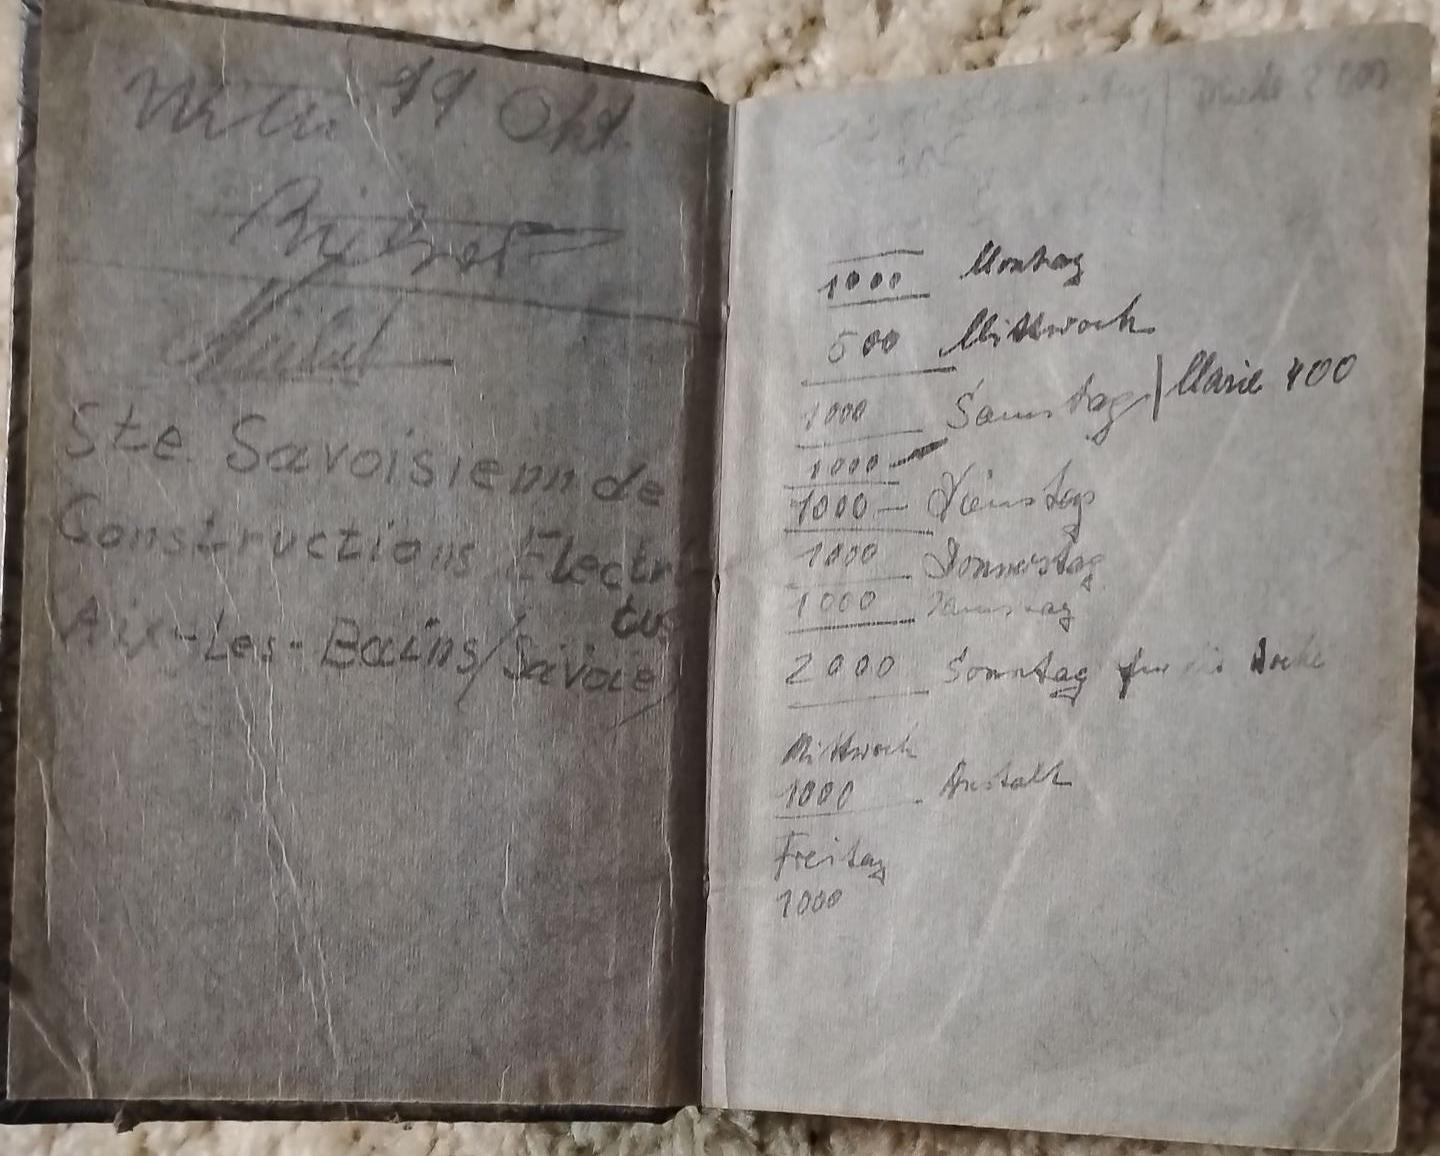 Willi 19 Okt.
Ste. Savoisienn de
Constructions Electri
Aix-Les-Bains/Savoie)
1000 Montag
500 Mittwoch
1000 Samstag | Marie 400
1000
1000 – Dienstag
1000 Donnerstag
1000 Samstag
2000 Sonntag für die Woche
Mittwoch
1000 Anstalt
Freitag
1000